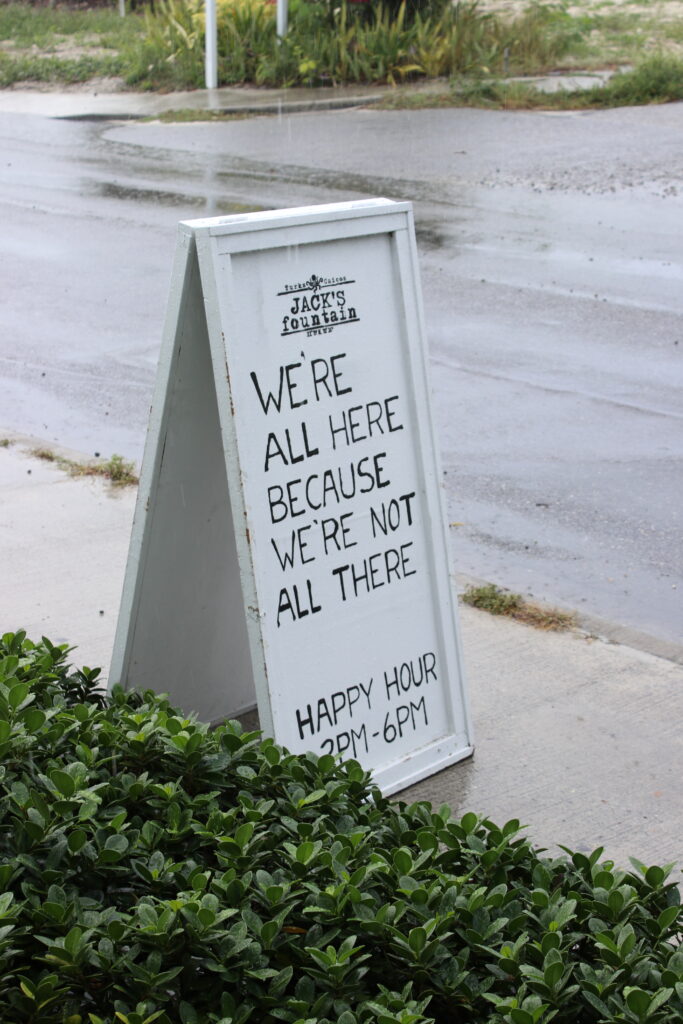 Turks Caicos
JACK'S
fountain
WE'RE
ALL HERE
BECAUSE
WE'RE NOT
ALL THERE
HAPPY HOUR
2PM-6PM